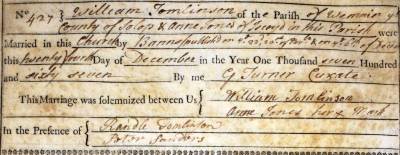 No. 427 } William Tomlinson of the Parish of
County of Salop & Anne Jones of in this Parish were
Married in this Church by Banns published on
this twenty fourth Day of December in the Year One Thousand seven Hundred
and sixty seven By me G Turner Curate
This Marriage was solemnized between Us { William Tomlinson
Anne Jones her x Mark
In the Presence of { Randle Tomlinson
Peter Sanders